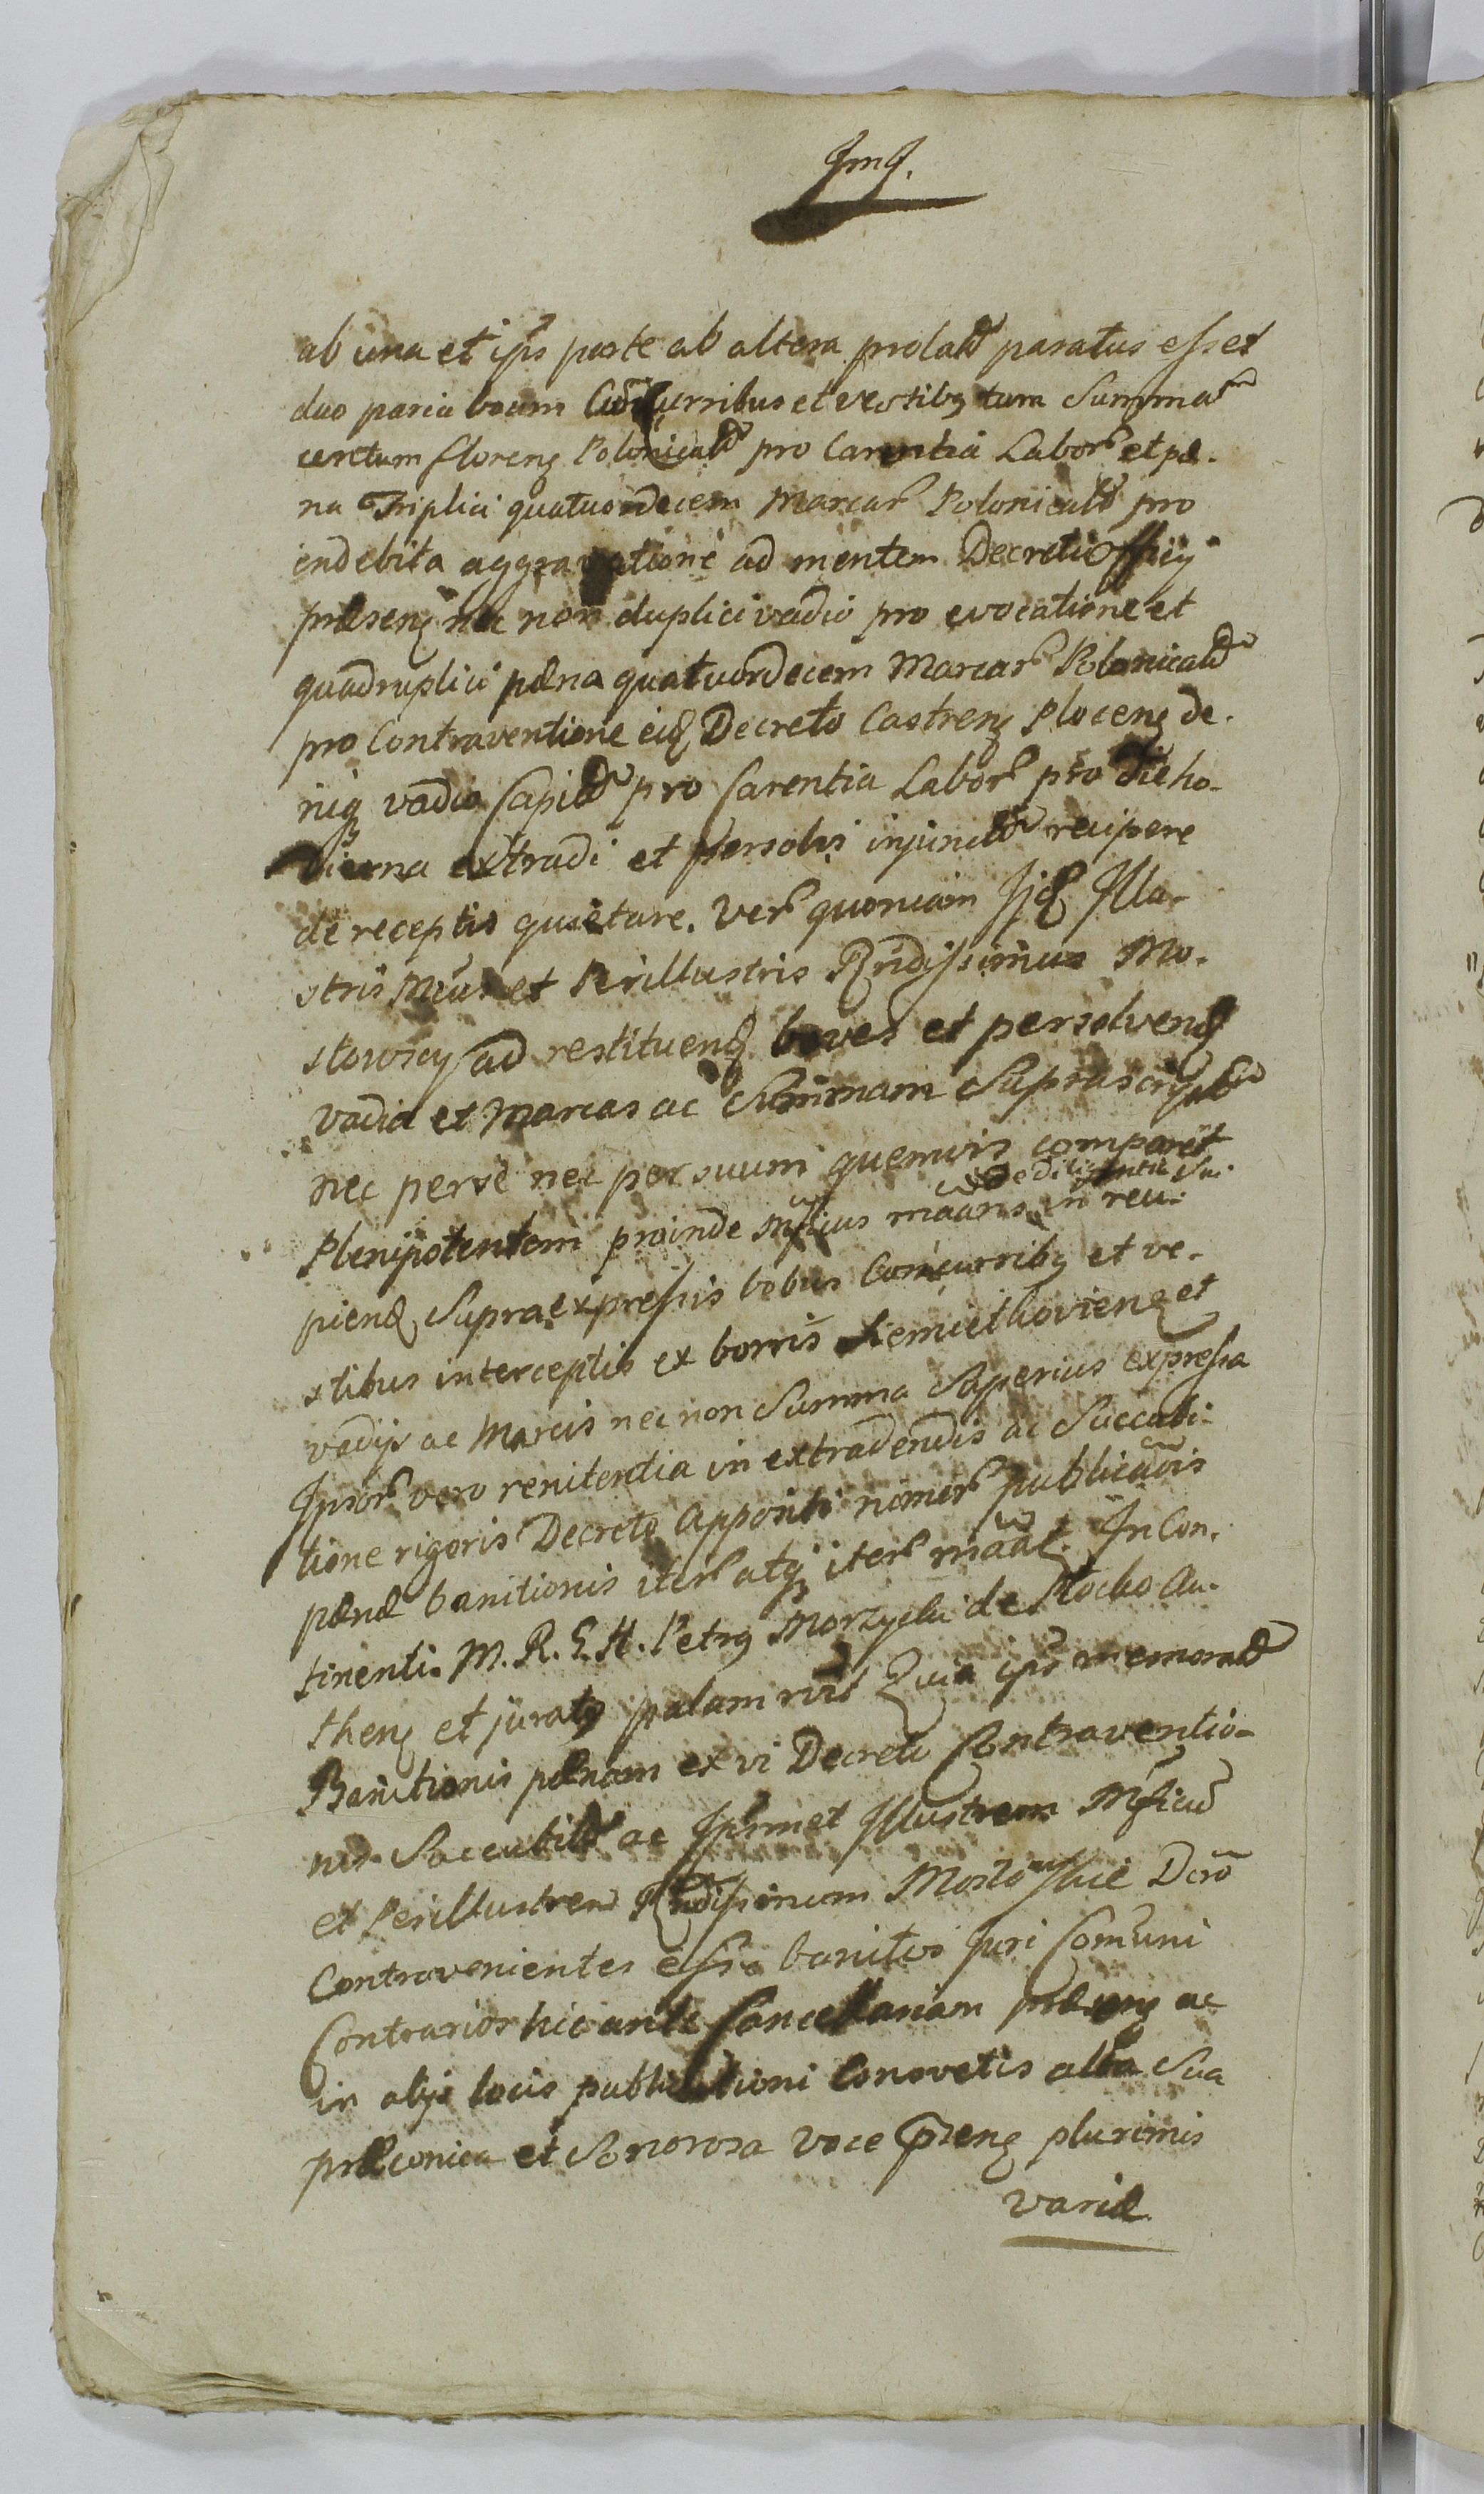 Jmq.
ab una et ips parte ab altera prolat paratus esset
duo paria boum Cum Curribus et vestibq tum Summam
centum florenq Polonicalm pro Carentia Labor et pæ-
na Triplici quatuordecem Marcar Polonicalm pro
indebita aggravatione ad mentem Decreti Officij
præsenq nec non duplici vadio pro evocatione et
quadruplici pæna quatuordecem Marcar Polonicalm
pro Contraventione eidq Decreto Castrenq Plocenq de-
niq vadio pro Carentia Labor pro die ho-
dierna extradi et persolvi injunct recipere
de receptis quietare. Ver quoniam Jjdq Illu-
stris Mcus et Perillustris Rndissimus Mo-
stowscy ad restituendq boves et persolvendq
Vadia et Marcas ac Summam Suprascript
nec per se nec per suum quemvis comparet
Plenipotentem proinde Mstrius
de diligentia Sua
in reci-
piendq Supra expressis bobus Cum curribq et ve-
stibus interceptis ex borris Siemiethovienq et
vadijs ac Marcis nec non Summa Superius expressa
Ipsor vero renitentia in extradendis ac Succubi-
tione rigoris Decreto Appositi nomer publicaonis
pænæ banitionis iter atq iter In Con-
tinenti. M. R. G. H. Petrq Morzycki de Plocko Au-
thenq et juratq palam rvit Quia ips memorat
Banitionis pænam ex vi Decreti Contraventio-
nis Succubit ac Ipsmet Illustrem Mficum
et Perillustrem Rndissimum Mostowskie Dcro
Contravenientes esse banitos Juri Comuni
Contrarios hic ante Cancellariam præsenq ac
in alijs locis publicationi Consvetis alta Sua
præconica et Sonorosa voce Prsenq plurimis
variæ